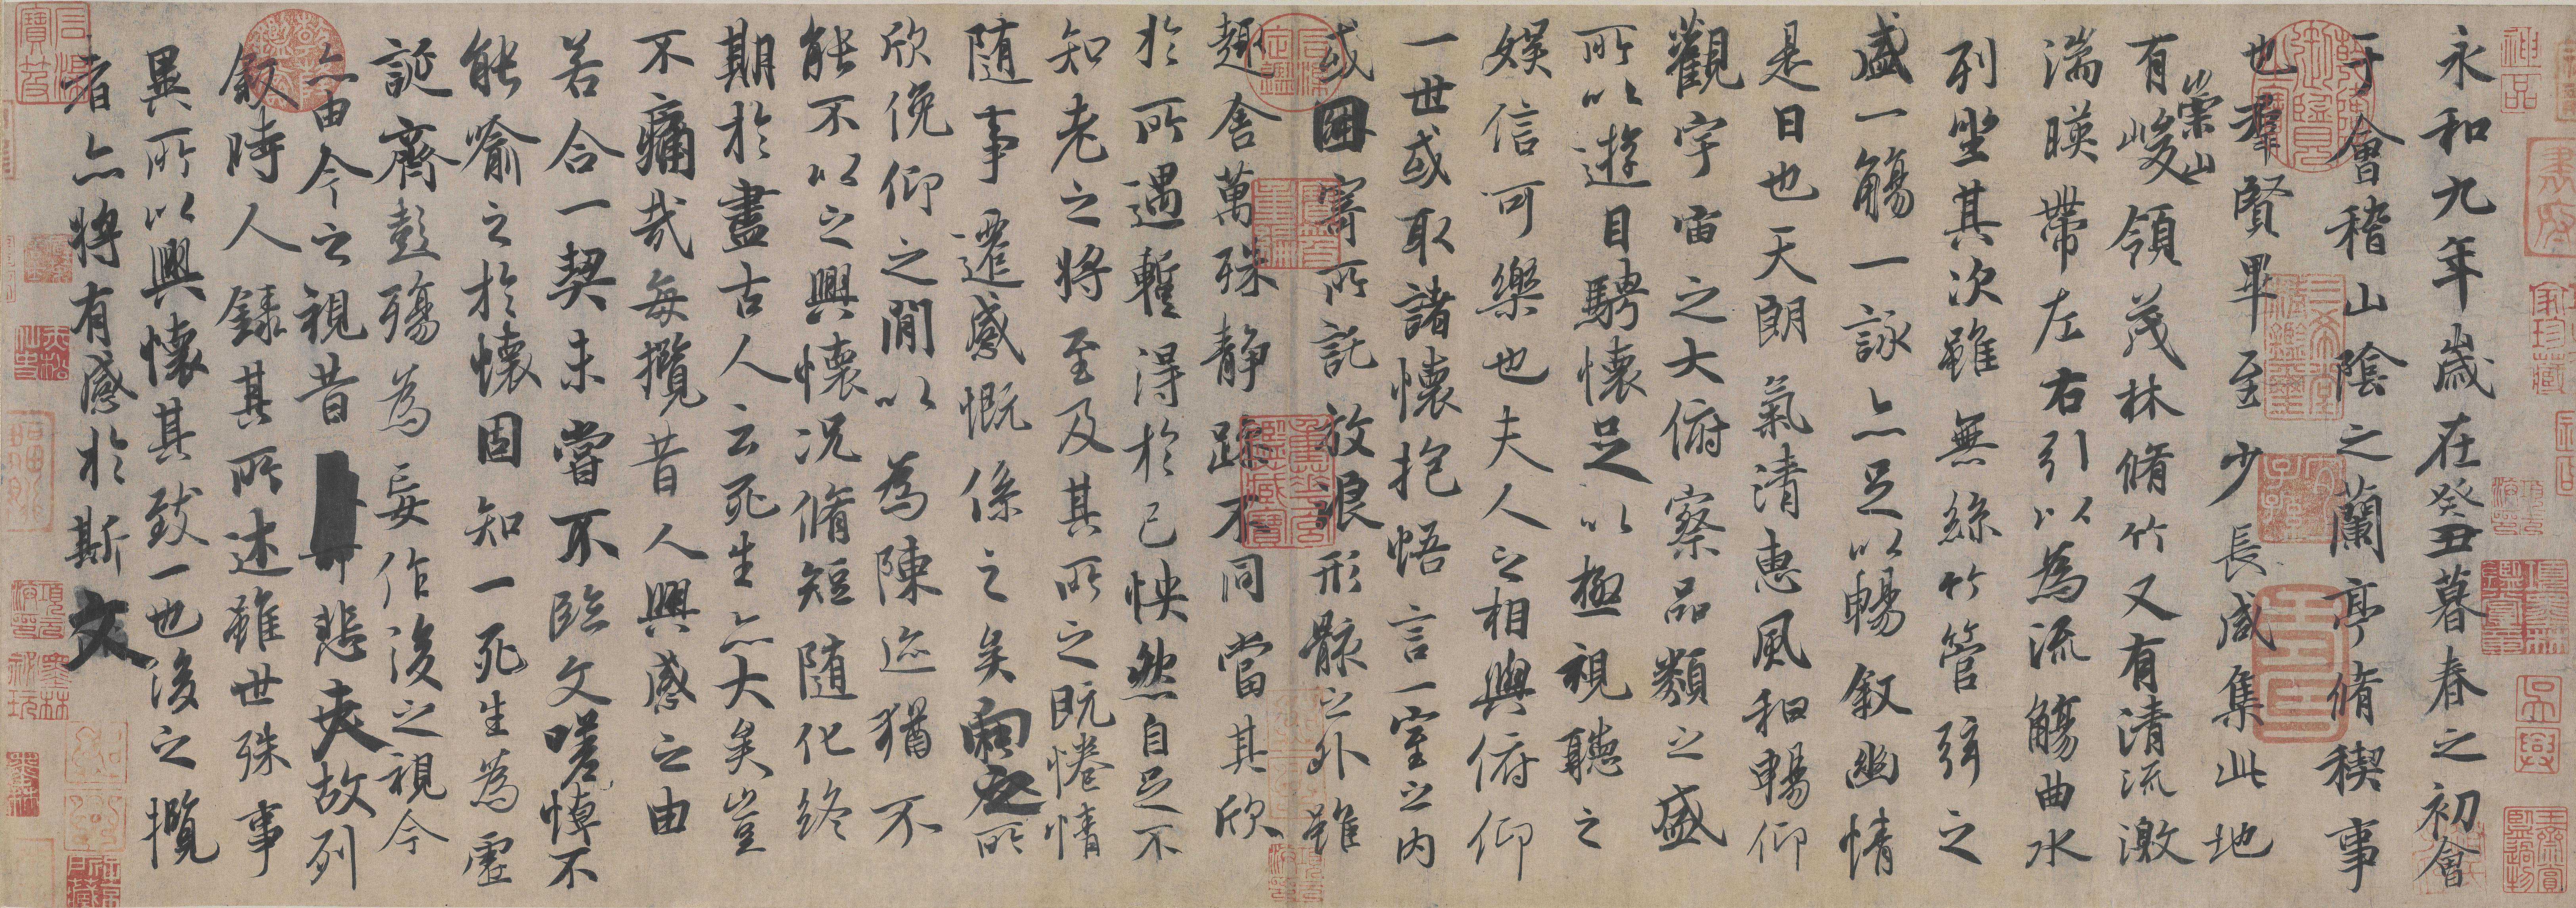 神品
永和九年歲在癸丑暮春之初會
于會稽山陰之蘭亭脩稧事
也羣賢畢至少長咸集此地
有崇山峻領茂林脩竹又有清流激
湍暎帶左右引以為流觴曲水
列坐其次雖無絲竹管弦之
盛一觴一詠亦足以暢敘幽情
是日也天朗氣清惠風和暢仰
觀宇宙之大俯察品類之盛
所以遊目騁懷足以極視聽之
娛信可樂也夫人之相與俯仰
一世或取諸懷抱悟言一室之內
或因寄所託放浪形骸之外雖
趣舍萬殊靜躁不同當其欣
於所遇暫得於己怏然自足不
知老之將至及其所之既惓情
隨事遷感慨係之矣向之所
欣俛仰之閒以為陳迹猶不
能不以之興懷況脩短隨化終
期於盡古人云死生亦大矣豈
不痛哉每攬昔人興感之由
若合一契未嘗不臨文嗟悼不
能喻之於懷固知一死生為虛
誕齊彭殤為妄作後之視今
亦由今之視昔悲夫故列
敘時人錄其所述雖世殊事
異所以興懷其致一也後之攬
者亦將有感於斯文